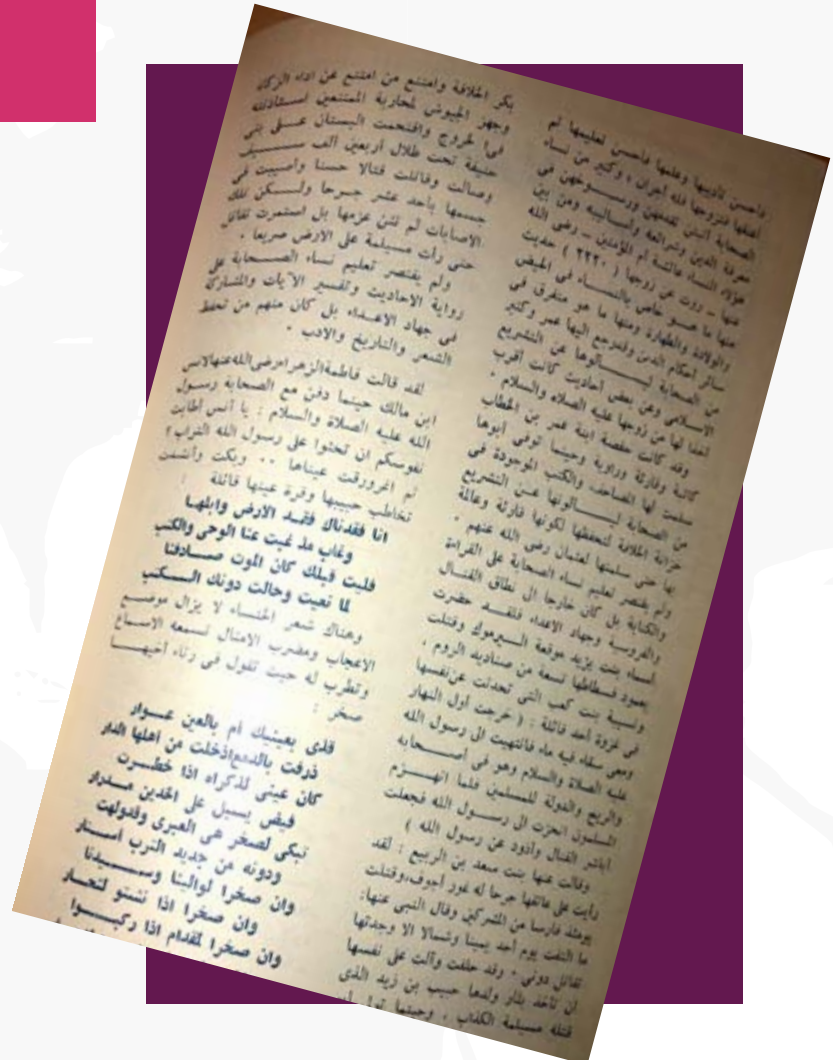 فأحسن تأديبها وعلمها فأحسن تعليمها ثم
أعتقها فتزوجها فله أجران » وكثير من نساء
الصحابة أثبتن تقدمهن ورسوخهن في
معرفة الدين وشرائعه وأساليبه ومن بين
هؤلاء النساء عائشة أم المؤمنين ــ رضى الله
عنها ــ روت عن زوجها ( ٢٢٣٠ ) حديث
منها ما هو خاص بالنساء فى الحيض
والولادة والطهارة ومنها ما هو متفرق فى
سائر أحكام الدين وقد رجع اليها عمر وكثير
من الصحابة ليسألوها عن التشريع
الاسلامى وعن بعض أحاديث كانت أقرب
أخذا لها من زوجها عليه الصلاة والسلام .
وقد كانت حفصة ابنة عمر بن الخطاب
كاتبة وقارئة وراوية وحينما توفى أبوها
سلمت لها المصاحف والكتب الموجودة فى
خزانة الخلافة لتحفظها لكونها قارئة وعالمة
بها حتى سلمتها لعثمان رضى الله عنهم .
ولم يقتصر تعليم نساء الصحابة على القراءة
والكتابة بل كان خارجا الى نطاق القتال
والفروسية وجهاد الاعداء فلقد حضرت
أسماء بنت يزيد موقعة اليرموك وقتلت
بعمود فسطاطها تسعة من صناديد الروم .
ونسيبة بنت كعب التى تحدثت عن نفسها
فى غزوة أحد قائلة : ( خرجت أول النهار
ومعى سقاء فيه ماء فانتهيت الى رسول الله
عليه الصلاة والسلام وهو فى أصحابه
والريح والدولة للمسلمين فلما انهزم
المسلمون انحزت الى رسول الله فجعلت
أباشر القتال وأذود عن رسول الله )
وقالت عنها بنت سعد بن الربيع : لقد
رأيت على عاتقها جرحا له غور أجوف، وقتلت
يومئذ فارسا من المشركين وقال النبى عنها:
ما التفت يوم أحد يمينا وشمالا الا وجدتها
تقاتل دونى . وقد حلفت وآلت على نفسها
أن تأخذ بثأر ولدها حبيب بن زيد الذى
قتله مسيلمة الكذاب . وحينما تولى
بكر الخلافة وامتنع من امتنع عن اداء الزكاة
وجهز الجيوش لمحاربة الممتنعين استأذنته
فى الخروج واقتحمت البستان على بنى
حنيفة تحت ظلال أربعين ألف سيف
وصالت وقاتلت قتالا حسنا وأصيبت فى
جسمها بأحد عشر جرحا ولكن تلك
الاصابات لم تثن عزمها بل استمرت تقاتل
حتى رأت مسيلمة على الارض صريعا .
ولم يقتصر تعليم نساء الصحابة على
رواية الاحاديث وتفسير الآيات والمشاركة
فى جهاد الاعداء بل كان منهم من تحفظ
الشعر والتاريخ والادب .
لقد قالت فاطمة الزهراء رضى الله عنها لانس
ابن مالك حينما دفن مع الصحابة رسول
الله عليه الصلاة والسلام : يا أنس أطابت
نفوسكم ان تحثوا على رسول الله التراب ؟
ثم اغرورقت عيناها .. وبكت وأنشدت
تخاطب حبيبها وقرة عينها قائلة :
انا فقدناك فقد الارض وابلها
وغاب مذ غبت عنا الوحى والكتب
فليت قبلك كان الموت صادفنا
لما نعيت وحالت دونك الكتب
وهناك شعر الخنساء لا يزال موضع
الاعجاب ومضرب الامثال تسمعه الاسماع
وتطرب له حيث تقول فى رثاء أخيها
صخر :
قذى بعينيك أم بالعين عوار
ذرفت بالدمع اذخلت من أهلها الدار
كان عينى لذكراه اذا خطرت
فيض يسيل على الخدين مدرار
تبكى لصخر هى العبرى وقد ولهت
ودونه من جديد الترب أستار
وان صخرا لوالينا وسيدنا
وان صخرا اذا نشتو لنحار
وان صخرا لمقدام اذا ركبوا